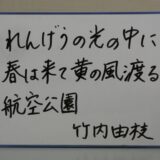 れんげうの光の中に
春は来て黄の風渡る
航空公園
竹内由枝